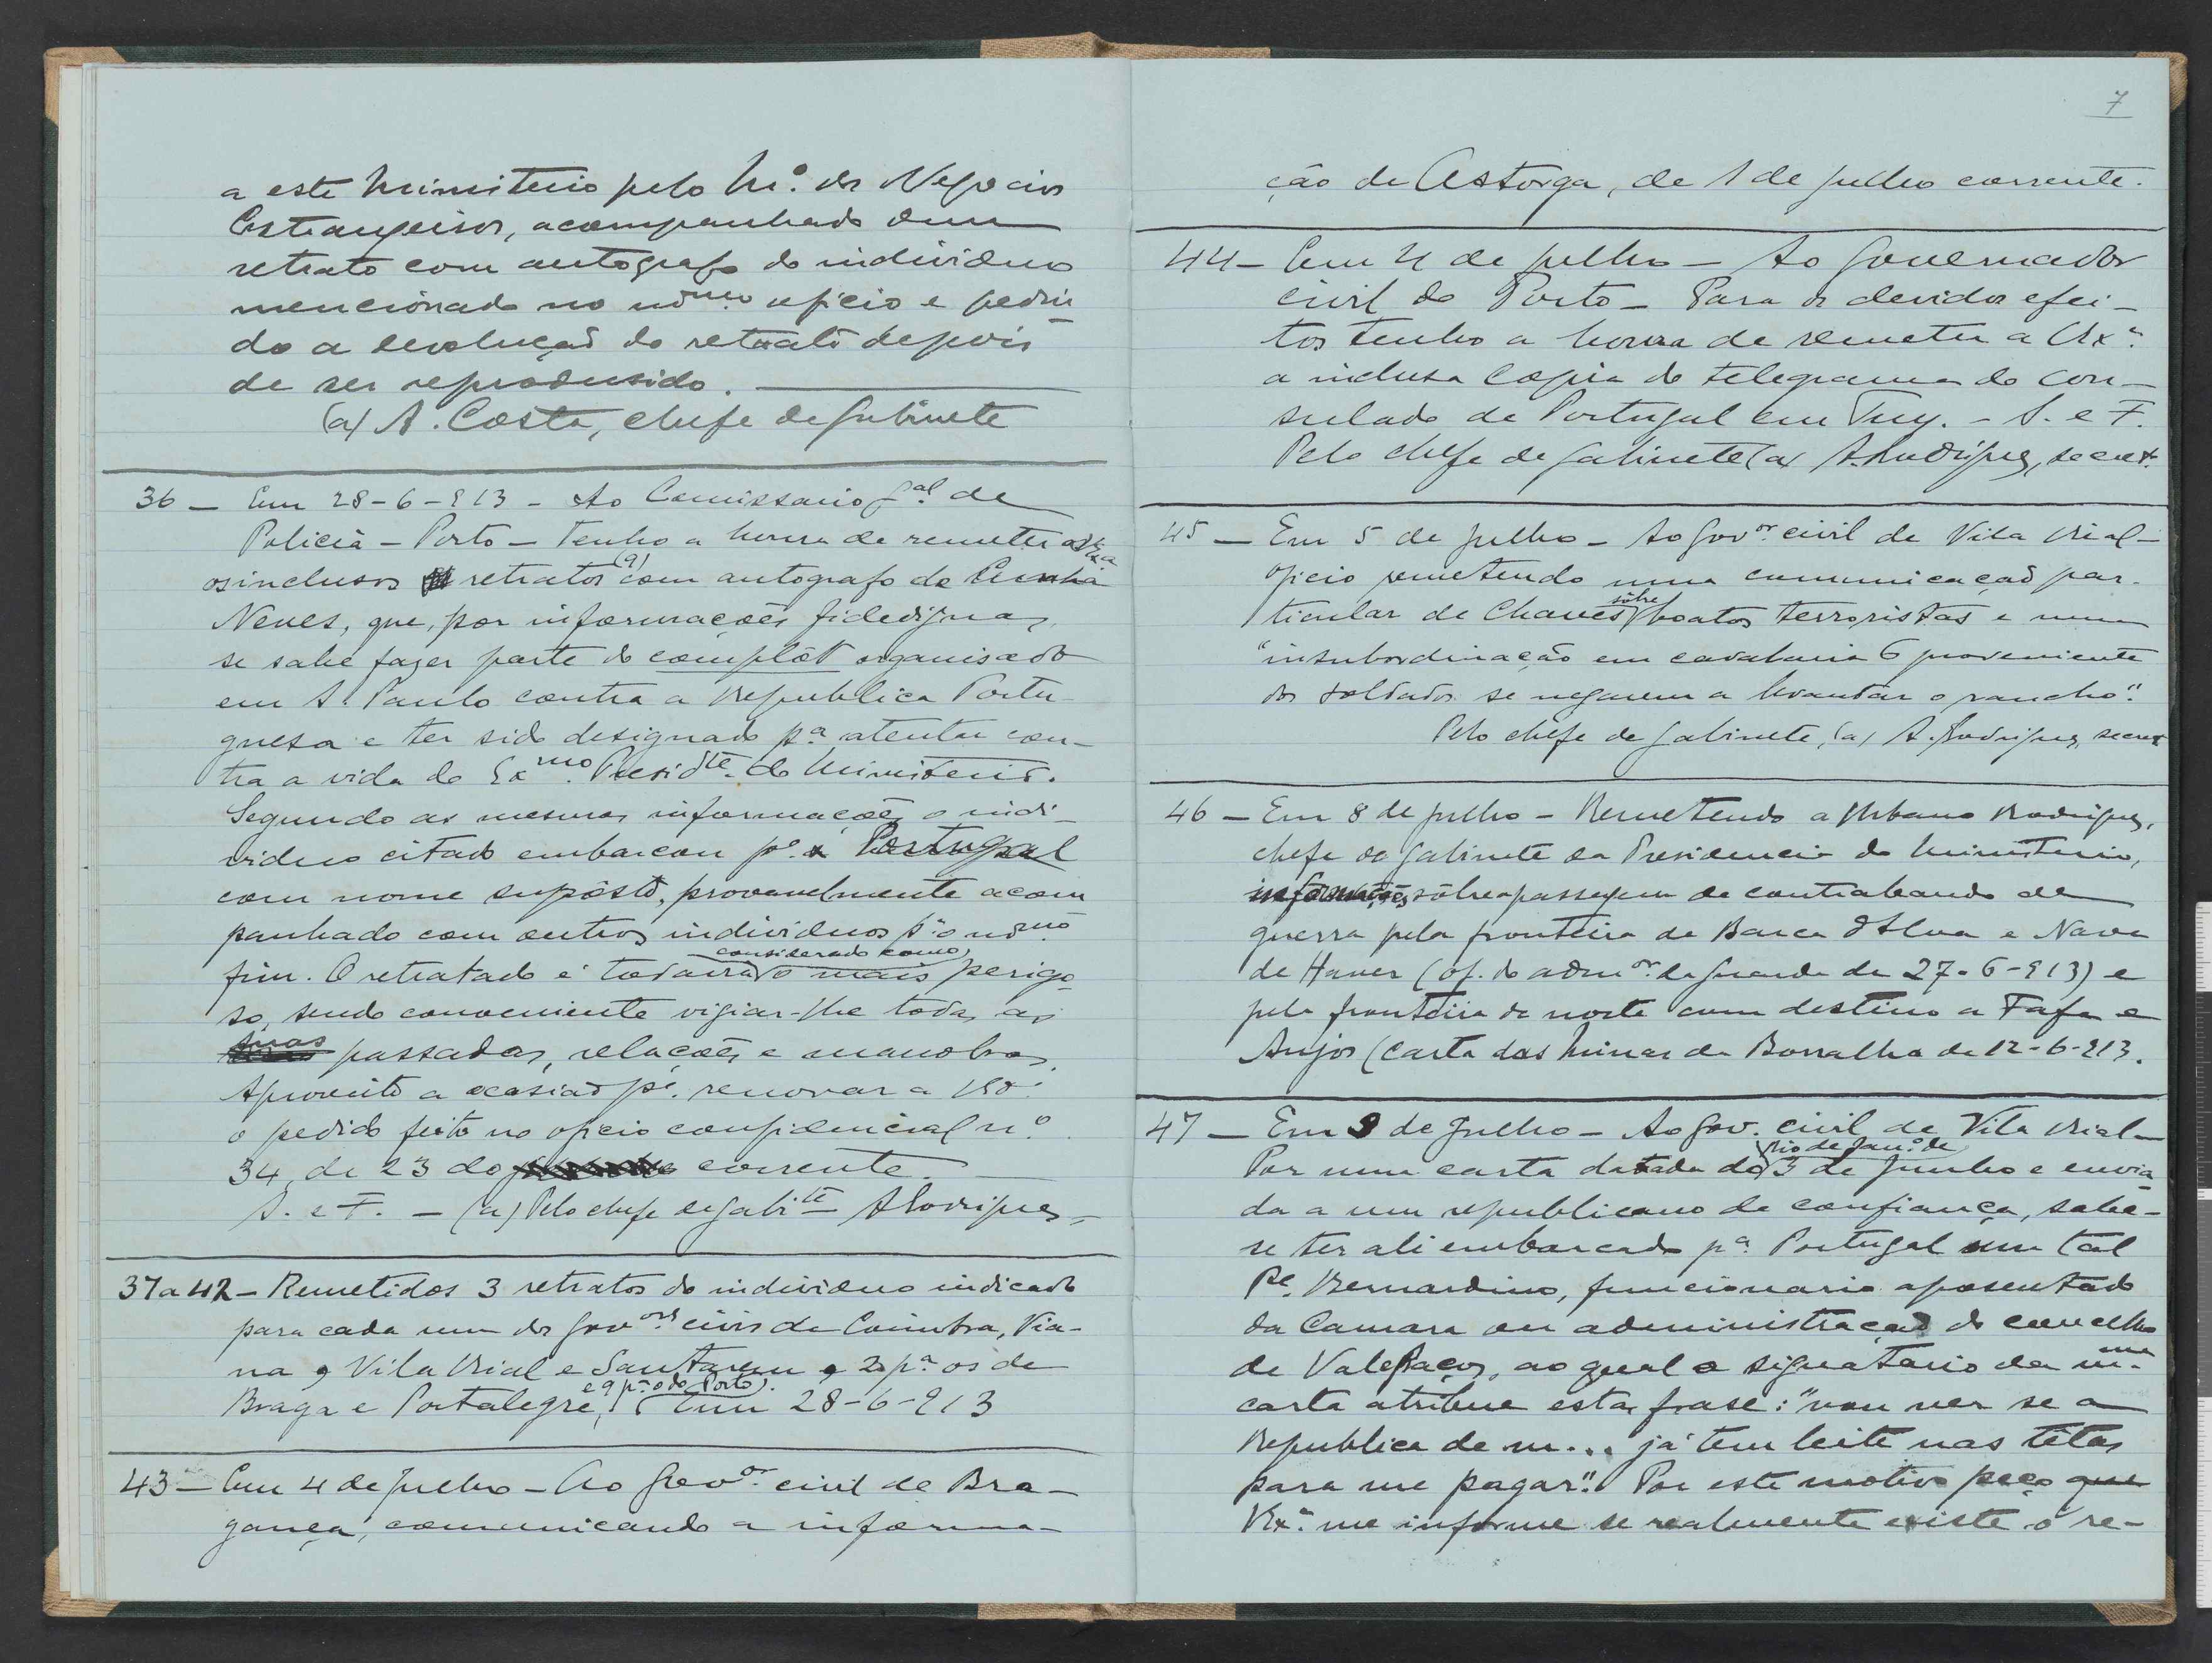 a este Ministerio pelo M.º dos Negocios
Estrangeiros, acompanhado dum
retrato com autografo do individuo
mencionado no mesmo oficio e pedin-
do a devolução do retrato depois
de ser reprodusido.
(a) A. Costa, chefe de gabinete
36 — Em 28-6-913 - Ao Comissario g.al de
Policia - Porto - Tenho a honra de remeter a V. Ex.a
os inclusos retratos (9) com autografo de Cunha
Neves, que, por informações fidedignas,
se sabe fazer parte do complôt organisado
em S. Paulo contra a Republica Portu-
guesa e ter sido designado p.a atentar con-
tra a vida do Ex.mo Presid.te do Ministerio.
Segundo as mesmas informações o indi-
viduo citado embarcou p.a Portugal
com nome supôsto, provavelmente acom
panhado com outros individuos p.a o mesmo
fim. O retratado é todavia considerado como o mais perigo-
so, sendo conveniente vigiar-lhe todas as
suas passadas, relações e manobras.
Aproveito a ocasião p.a renovar a V. Ex.a
o pedido feito no oficio confidencial n.º
34, de 23 do corrente.
S. e F. — (a) Pelo chefe de gabi.te A Rodrigues
37 a 42 - Remetidos 3 retratos do individuo indicado
para cada um dos gov.ores civis de Coimbra, Via-
na, Vila Rial e Santarem e 2 p.a os de
Braga e Portalegre, (e 9 p.a o do Porto). Em 28-6-913
43 — Em 4 de Julho - Ao Gov.or civil de Bra-
gança, comunicando a informa-
7
ção de Astorga, de 1 de Julho corrente.
44 — Em 4 de Julho — Ao Governador
civil do Porto — Para os devidos efei-
tos tenho a honra de remeter a V. Ex.a
a inclusa copia do telegrama do con-
sulado de Portugal em Tuy. - S. e F.
Pelo chefe de gabinete (a) A. Rodrigues, secret.
45 — Em 5 de Julho - Ao Gov.or civil de Vila Rial -
Oficio remetendo uma comunicação par-
ticular de Chaves sôbre boatos terroristas e uma
"insubordinação em cavalaria 6 proveniente
dos soldados se negarem a levantar o rancho".
Pelo chefe de gabinete, (a) A. Rodrigues, secret
46 — Em 8 de Julho - Remetendo a Urbano Rodrigues,
chefe do gabinete da Presidencia do Ministerio,
informações sôbre a passagem de contrabando de
guerra pela fronteira de Barca d'Alva e Nave
de Haver (of. do adm.or da Guarda de 27-6-913) e
pela fronteira do norte com destino a Fafe e
Anjos (carta das Minas da Borralha de 12-6-913.
47 — Em 9 de Julho - Ao Gov. civil de Vila Rial -
Por uma carta datada do Rio de Jan.º de 3 de Junho e envia-
da a um republicano de confiança, sabe-
se ter ali embarcado p.a Portugal um tal
P.e Bernardino, funcionario aposentado
da Camara ou administração do concelho
de Valpaços, ao qual o signatario da m.ma
carta atribue esta frase: "vou ver se a
Republica de m... já tem leite nas têtas
para me pagar". Por este motivo peço que
V. Ex.a me informe se realmente existe o re-